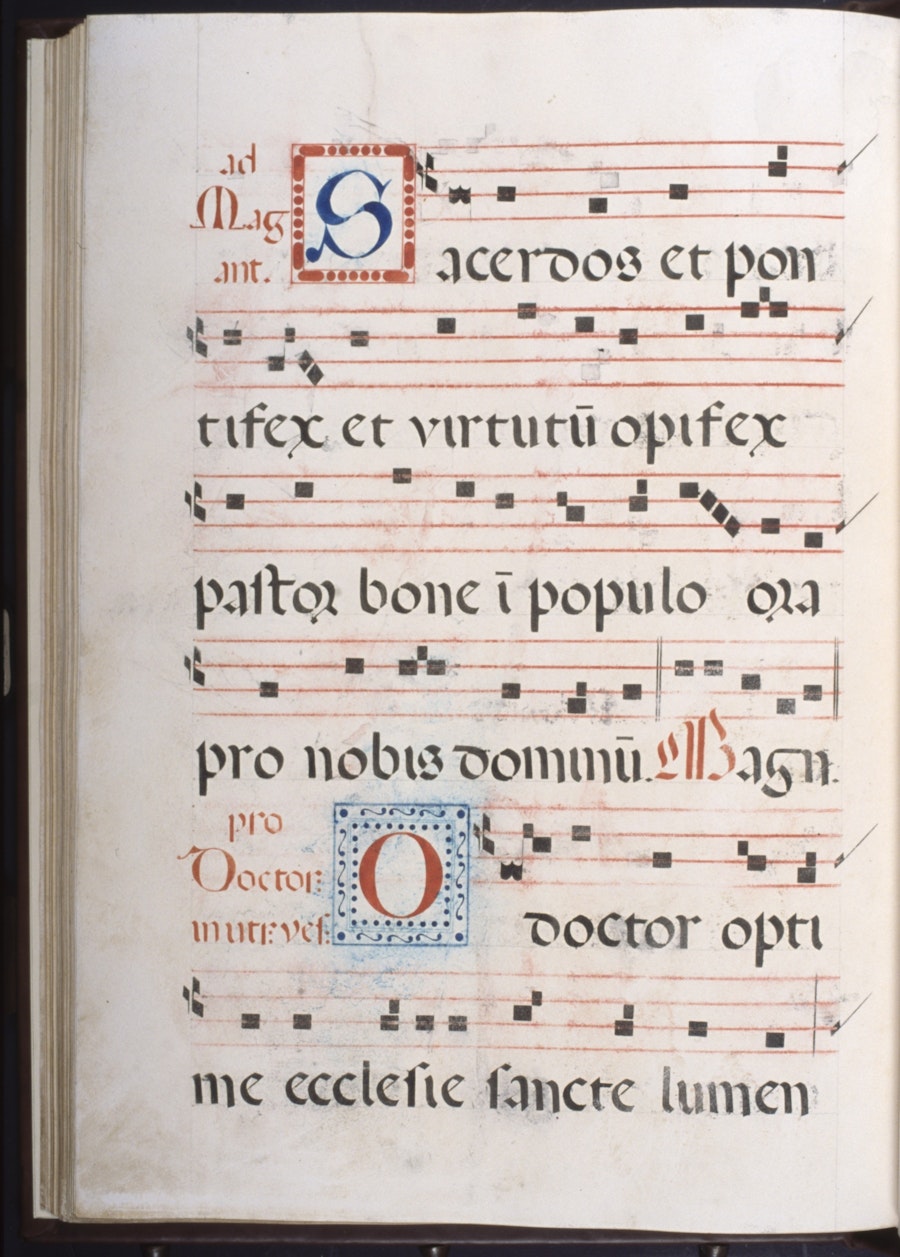 ad
Mag
ant.
Sacerdos et pon
tifex et virtutū opifex
pastor bone ī populo ora
pro nobis dominū. Magn.
pro
Doctor
in utr vesp.
O doctor opti
me ecclesie sancte lumen